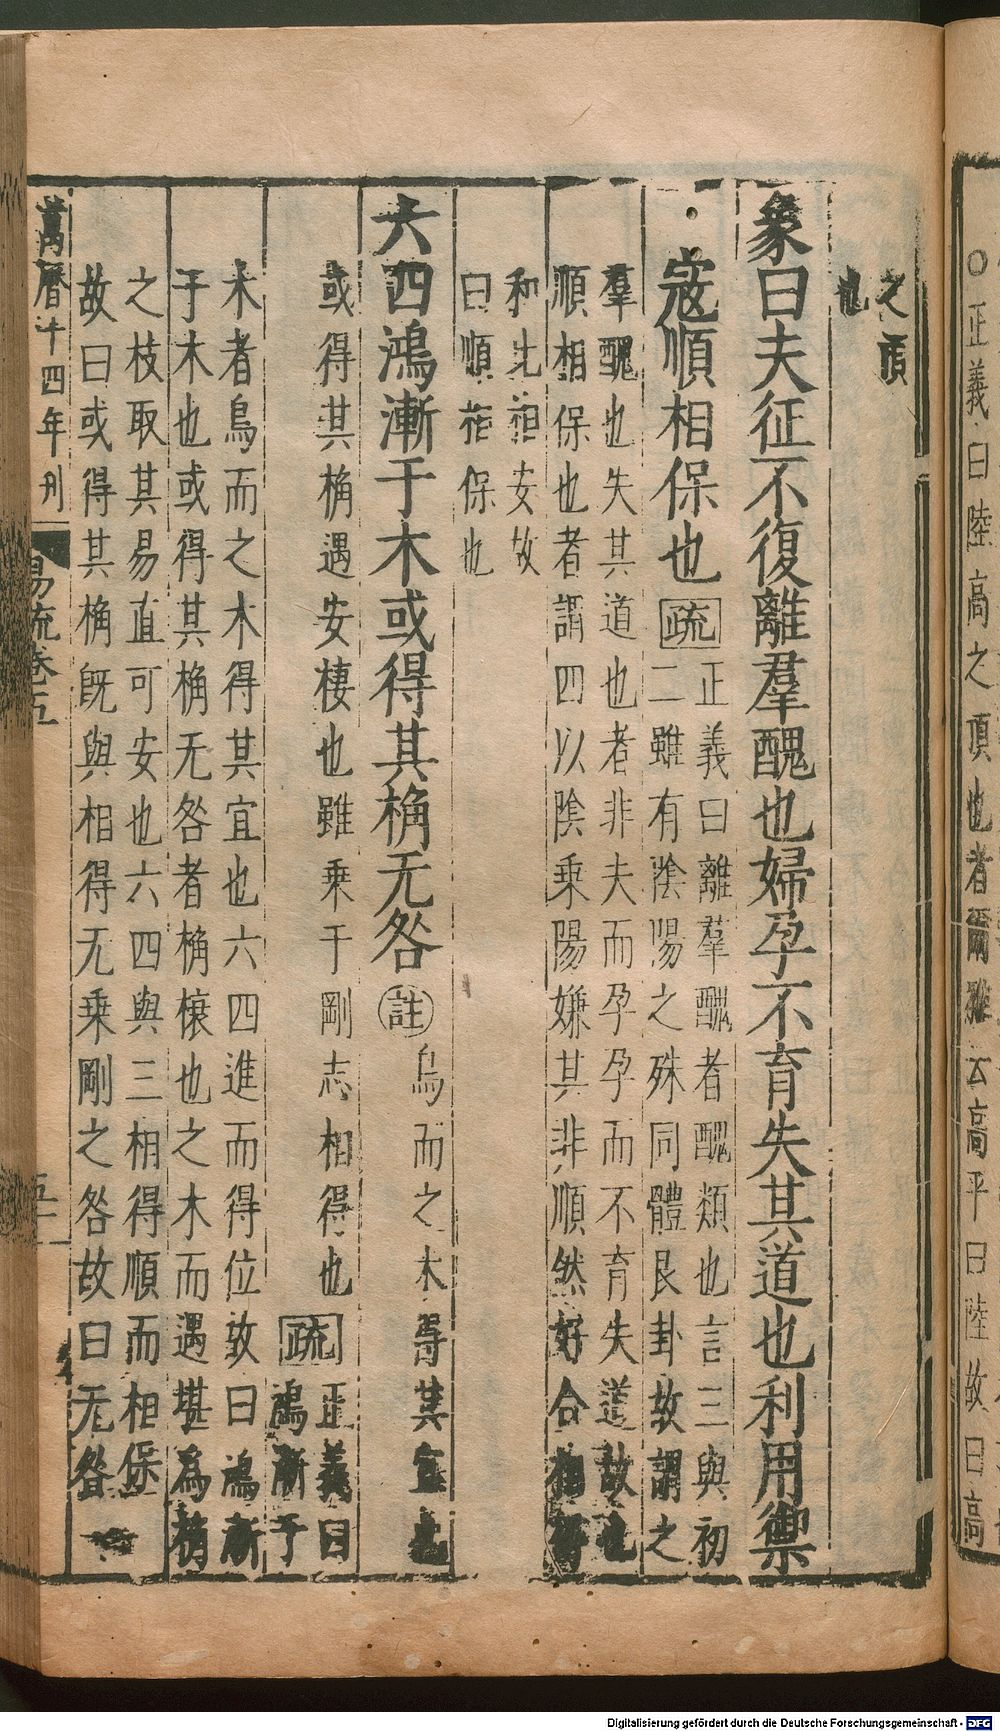 ○正義曰陸高之頂也者爾雅云高平曰陸故曰高
之頂
也
象曰夫征不復離羣醜也婦孕不育失其道也利用禦
寇順相保也疏
正義曰離羣醜者醜類也言三與初
二雖有陰陽之殊同體艮卦故謂之
羣醜也失其道也者非夫而孕孕而不育失道故也
順相保也者謂四以陰乘陽嫌其非順然好合相得
和比相安故
曰順相保也
六四鴻漸于木或得其桷无咎註
鳥而之木得其宜也
或得其桷遇安棲也雖乗于剛志相得也疏
正義曰
鴻漸于
木者鳥而之木得其宜也六四進而得位故曰鴻漸
于木也或得其桷无咎者桷榱也之木而遇堪爲桷
之枝取其易直可安也六四與三相得順而相保
故曰或得其桷旣與相得无乗剛之咎故曰无咎
萬曆十四年刋
易疏卷五
五十一
Digitalisierung gefördert durch die Deutsche Forschungsgemeinschaft - DFG